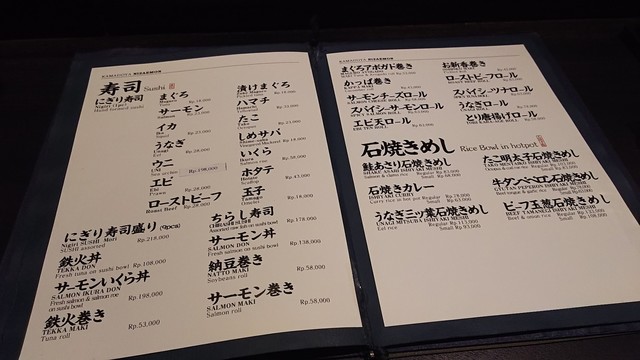 KAMAGOYA HISAEMON
寿司 Sushi
にぎり寿司
Nigiri (1pc)
Hand formed sushi
まぐろ
サーモン
Salmon
イカ
Ika
Rp.25,000
うなぎ
Unagi
Eel
Rp.28,000
ウニ
UNI
Sea urchin
Rp.198,000
エビ
Ebi
Prawn
Rp.28,000
ローストビーフ
Roast Beef
Rp.28,000
漬けまぐろ
ハマチ
Hamachi
たこ
Tako
Octopus
しめサバ
いくら
Ikura
Salmon roe
Rp.38,000
ホタテ
Hotate
Scallop
Rp.45,000
玉子
Tamago
Rp.18,000
にぎり寿司盛り (9pcs)
Nigiri SUSHI Mori
SUSHI assorted
Rp.218,000
鉄火丼
TEKKA DON
Fresh tuna on sushi bowl
Rp.108,000
サーモンいくら丼
SALMON IKURA DON
Fresh salmon & salmon roe
on sushi bowl
Rp.198,000
鉄火巻き
TEKKA MAKI
Tuna roll
Rp.53,000
ちらし寿司
CHIRASHI SUSHI
Assorted raw fish on sushi bowl
Rp.178,000
サーモン丼
SALMON DON
Fresh salmon on sushi bowl
Rp.138,000
納豆巻き
NATTO MAKI
Soybeans roll
Rp.58,000
サーモン巻き
SALMON MAKI
Salmon roll
Rp.58,000
KAMAGOYA HISAEMON
まぐろアボガド巻き
かっぱ巻き
KAPPA MAKI
サーモンチーズロール
SALMON CHEESE ROLL
スパイシーサーモンロール
SPICY SALMON ROLL
エビ天ロール
EBI TEN ROLL
お新香巻き
ローストビーフロール
ROAST BEEF ROLL
スパイシーツナロール
うなぎロール
UNAGI ROLL
とり唐揚げロール
石焼きめし Rice Bowl in hotpot
鮭あさり石焼きめし
SHAKE ASARI ISHIYAKI MESHI
Salmon & clams rice
石焼きカレー
ISHIYAKI CURRY
Curry rice in hot pot
うなぎミツ葉石焼きめし
UNAGI MITSUBA ISHIYAKI MESHI
Eel rice
Regular Rp.113,000
Small Rp.93,000
たこ明太子石焼きめし
TAKO MENTAIKO ISHIYAKI MESHI
牛タンペペロン石焼きめし
GYUTAN PEPERON ISHIYAKI MESHI
ビーフ玉葱石焼きめし
BEEF TAMANEGI ISHIYAKI MESHI
Beef & onion rice